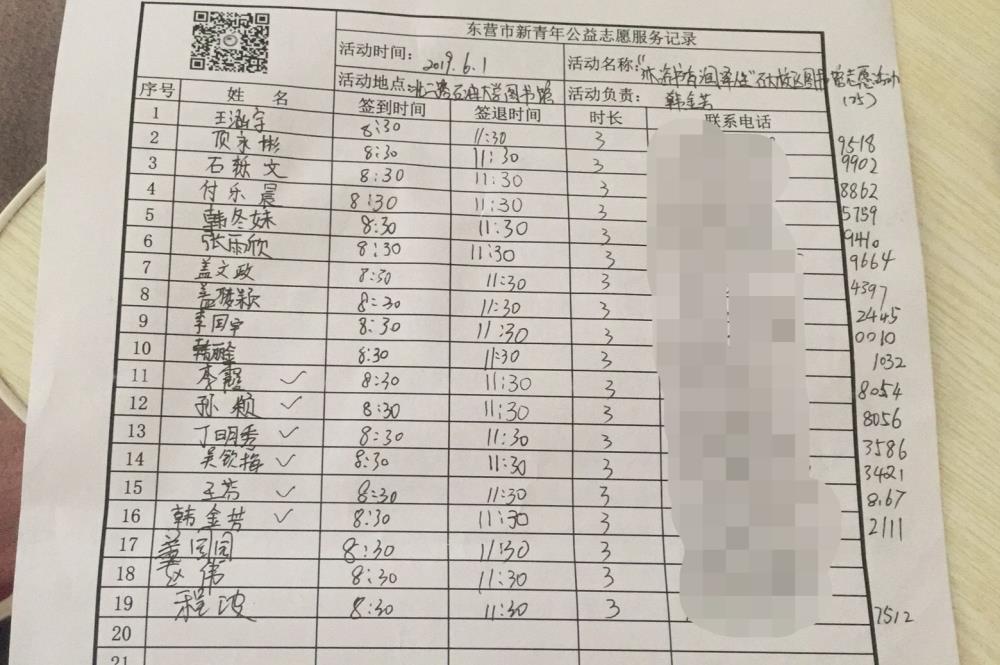 东营市新青年公益志愿服务记录
活动时间: 2019.6.1 活动名称:
活动地点: 石油大学图书馆 活动负责: 韩金芳 (25)
序号 姓 名 签到时间 签退时间 时长 联系电话
1 王涵宇 8:30 11:30 3 9518
2 永彬 8:30 11:30 3 9902
3 石栎文 8:30 11:30 3 8862
4 付乐晨 8:30 11:30 3 5759
5 韩冬妹 8:30 11:30 3 9410
6 张雨欣 8:30 11:30 3 9664
7 盖文政 8:30 11:30 3 4397
8 盖 颖 8:30 11:30 3 2445
9 李国宇 8:30 11:30 3 0010
10 韩 8:30 11:30 3 1032
11 李霞 ✓ 8:30 11:30 3 8054
12 孙颖 ✓ 8:30 11:30 3 8056
13 丁明秀 ✓ 8:30 11:30 3 3586
14 吴钦梅 ✓ 8:30 11:30 3 3421
15 王芳 ✓ 8:30 11:30 3 8167
16 韩金芳 ✓ 8:30 11:30 3 2111
17 8:30 11:30 3
18 赵伟 8:30 11:30 3
19 程波 8:30 11:30 3 7512
20
21